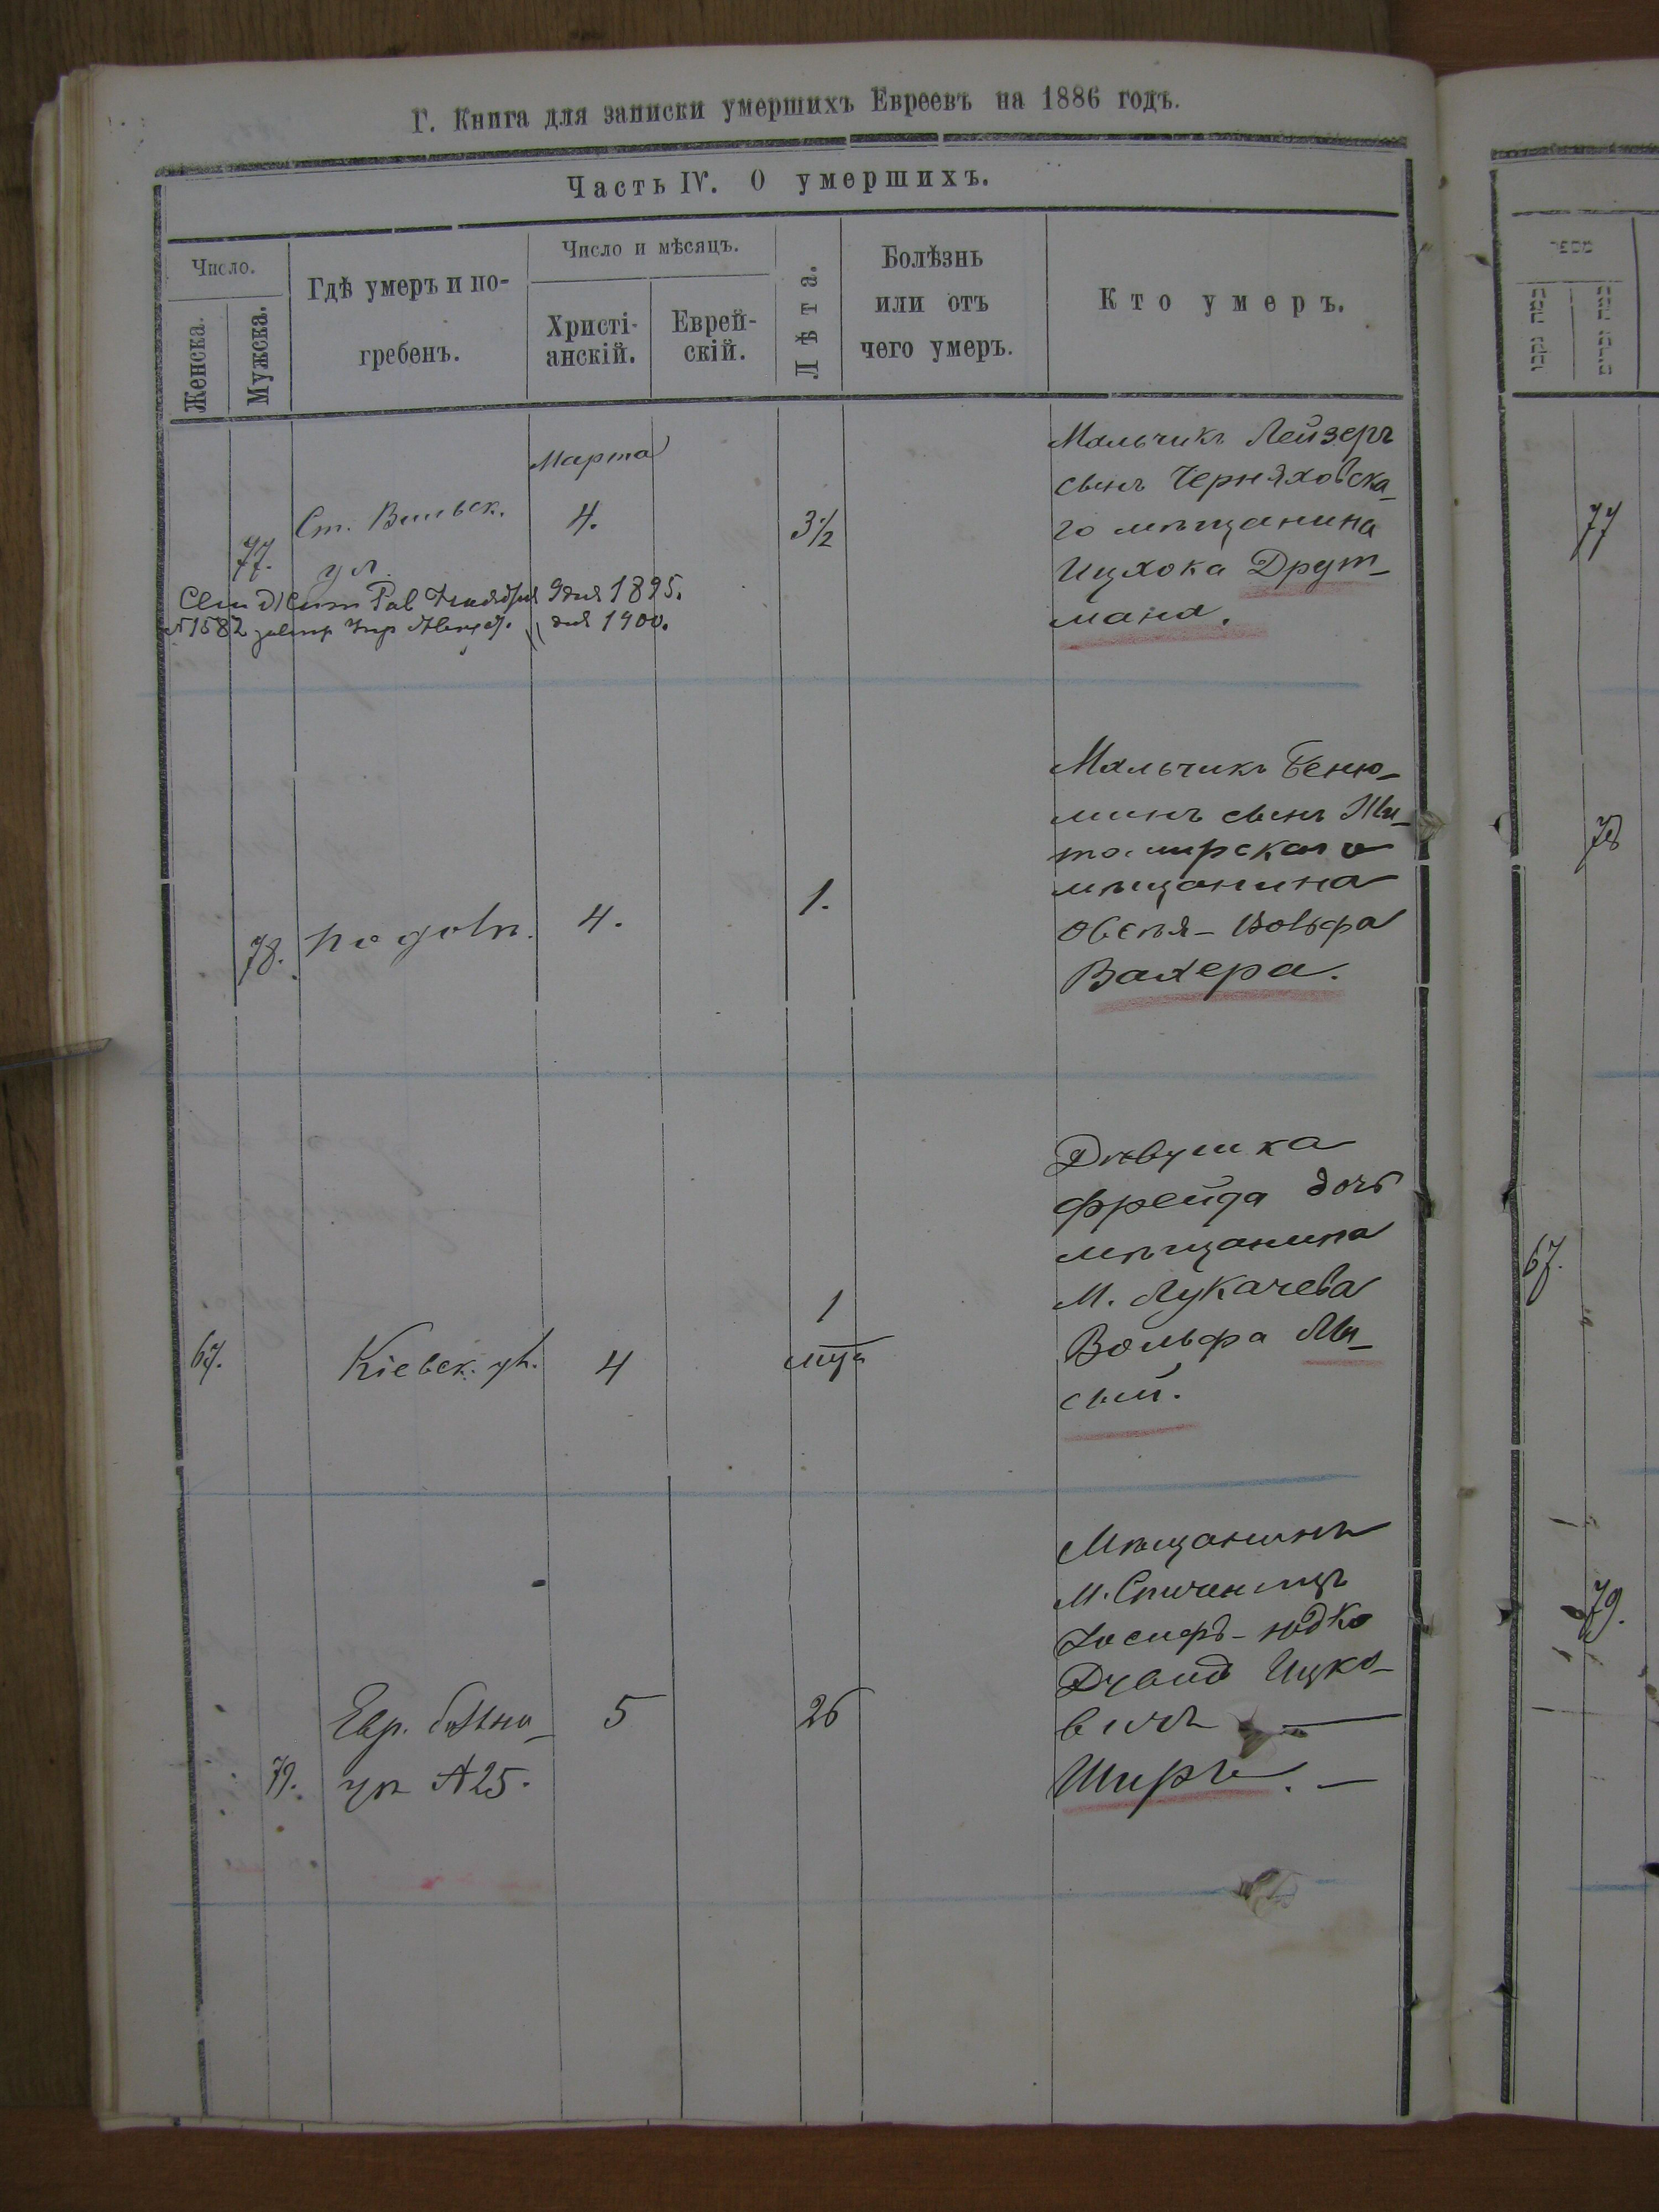 Г. Книга для записки умершихъ Евреевъ на 1886 годъ.
Часть IV. О умершихъ.
Число.
Женска.
Мужска.
Гдѣ умеръ и по-
гребенъ.
Число и мѣсяцъ.
Христі-
анскій.
Еврей-
скій.
Лѣта.
Болѣзнь
или отъ
чего умеръ.
Кто умеръ.
77.
Ст. Вильск.
ул.
Марта
4.
3 1/2
Мальчикъ Лейзеръ
сынъ Черняховска-
го мѣщанина
Ицхока Друт-
мана.
9 дня 1895.
№ 1582
дня 1900.
78.
4.
1.
Мальчикъ Беню-
минъ сынъ Жи-
томирскаго
мѣщанина
Овсѣя-Вольфа
Вахера.
67.
Кіевск. ул.
4
1
мца
Дѣвушка
Фрейда дочь
мѣщанина
М. Лукачева
Вольфа Лы-
сый.
79.
Евр. больни-
ца №25.
5
26
Мѣщанинъ
М.
Іосифъ-Юдко
Ицко-
вичъ —
Ширъ. —
מספר
77
78
67.
79.